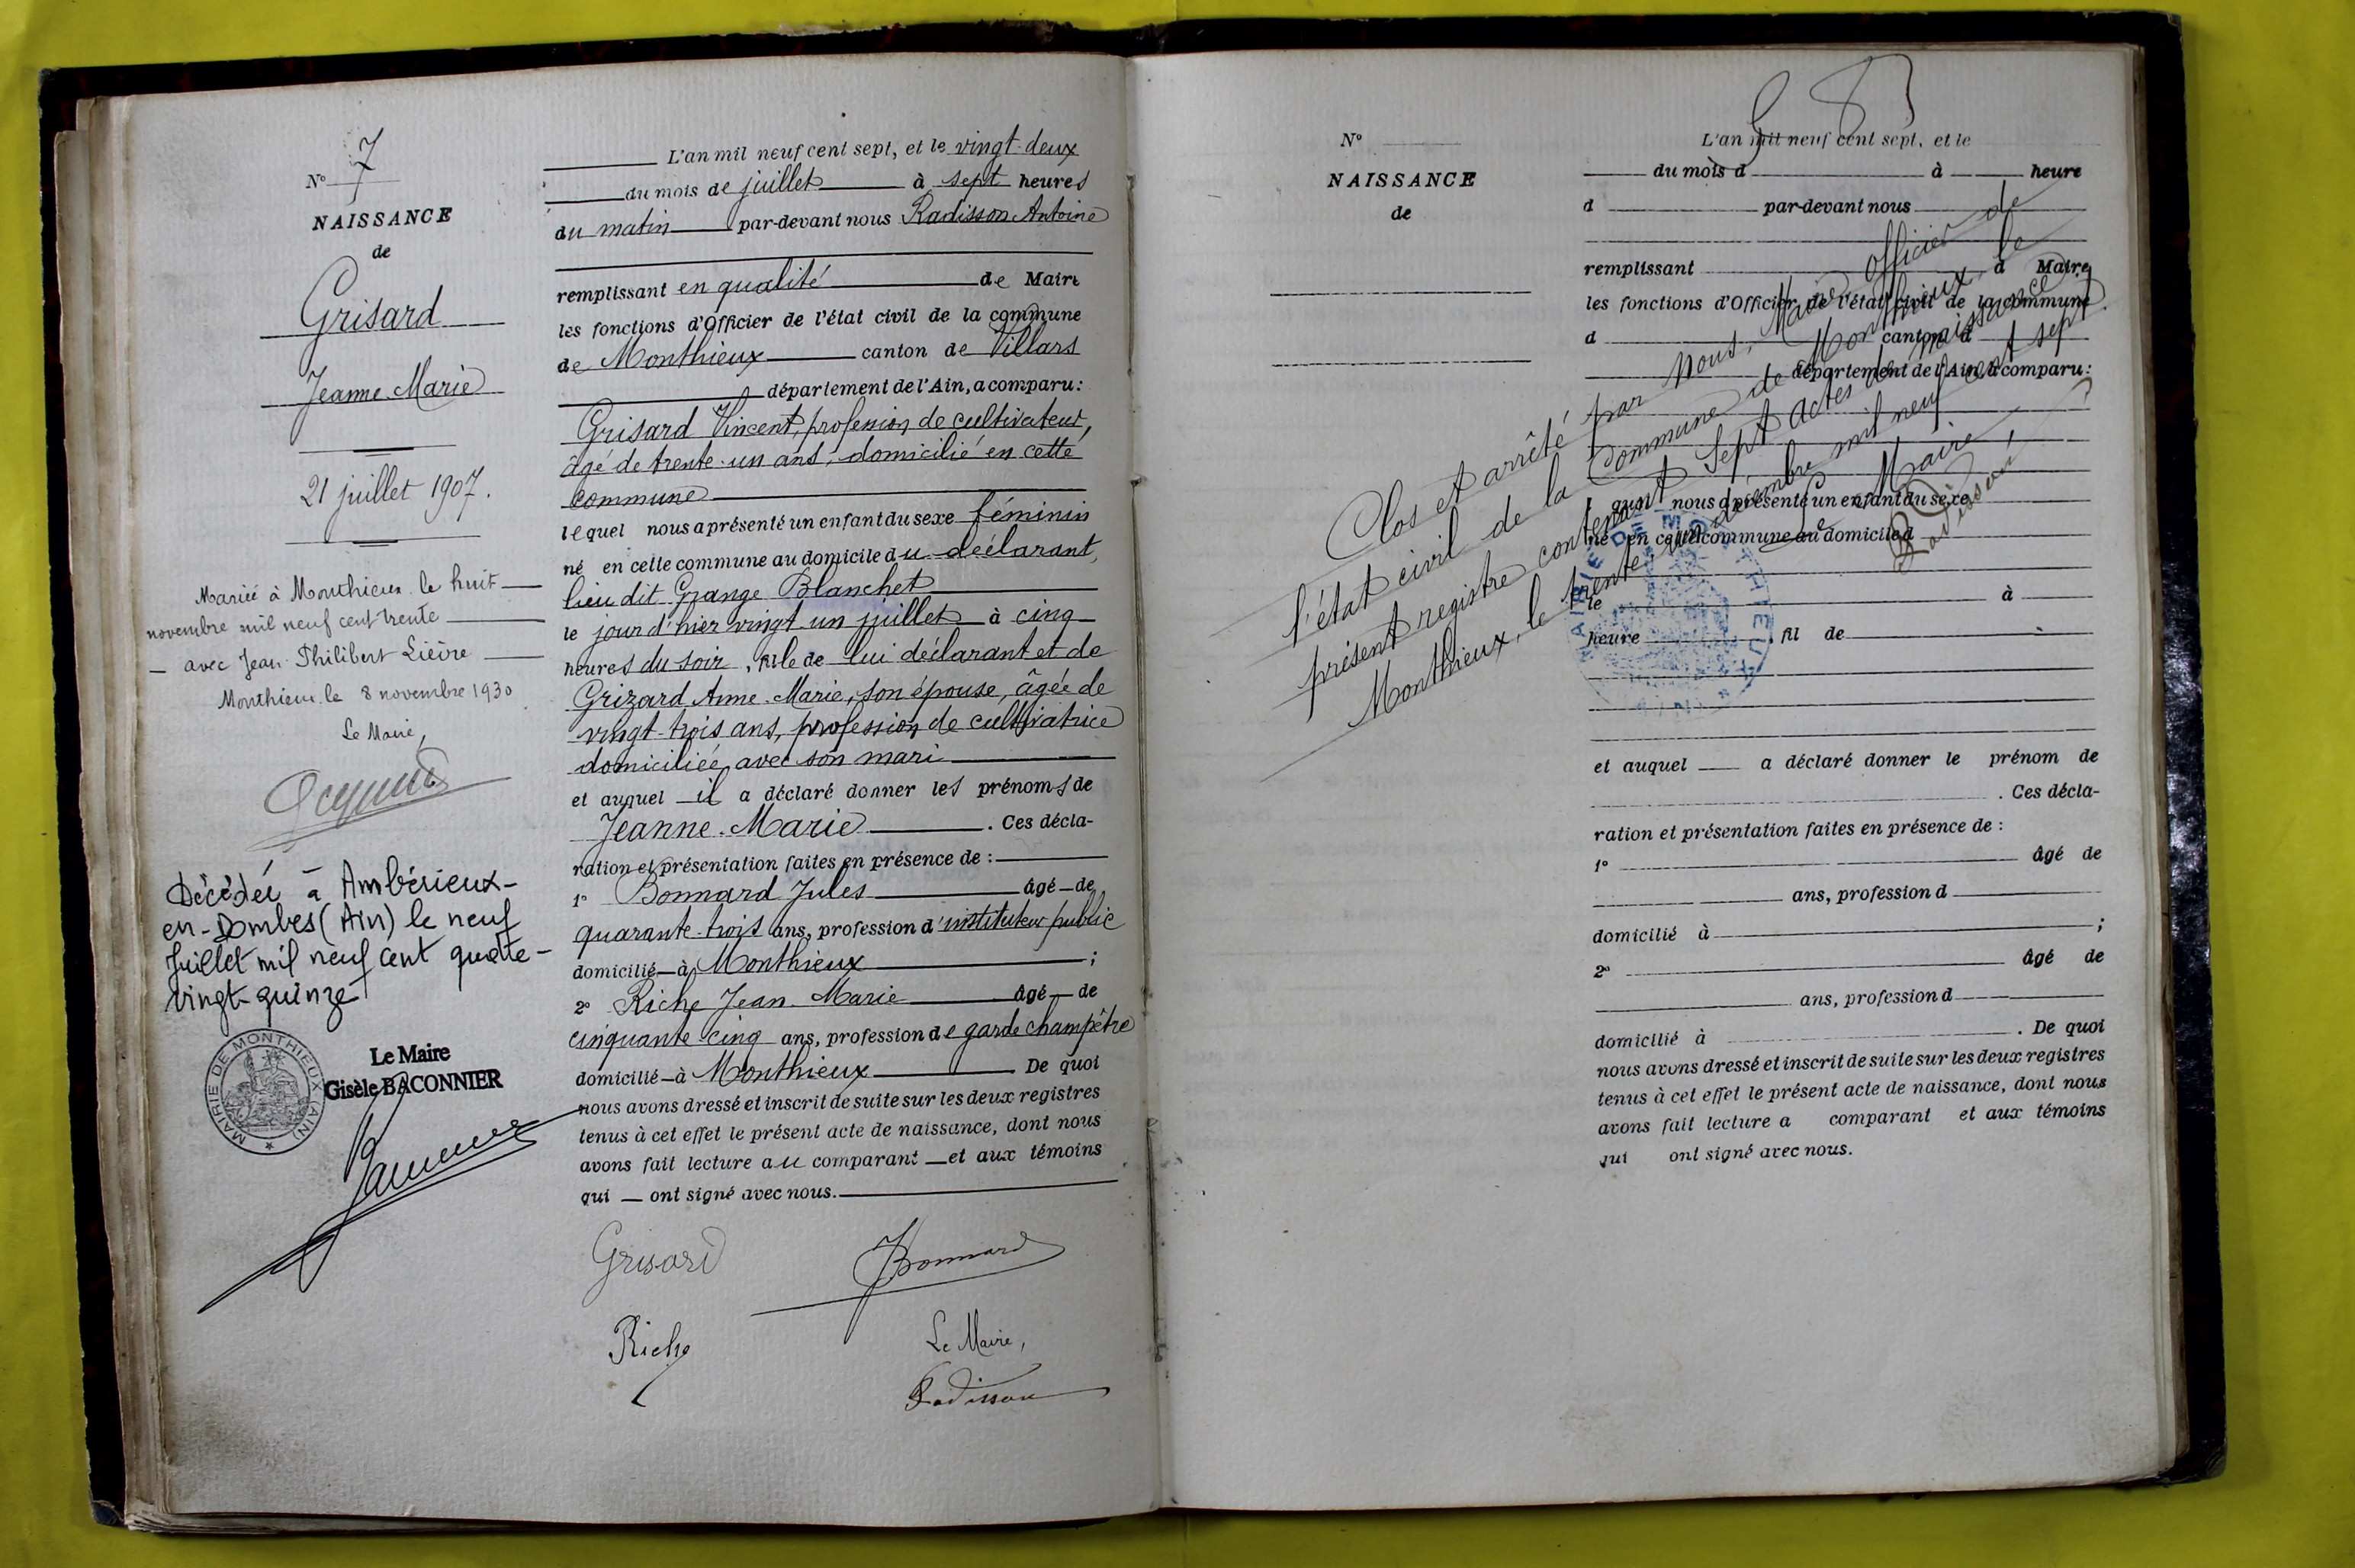 N° 7
NAISSANCE
de
Grisard
Jeanne Marie
21 juillet 1907.
Mariée à Monthieux le huit
novembre mil neuf cent trente
avec Jean Philibert Lièvre
Monthieux le 8 novembre 1930
Le Maire,
Décédée à Ambérieux-
en-Dombes (Ain) le neuf
Juillet mil neuf cent quatre-
vingt-quinze
MAIRIE DE MONTHIEUX (AIN)
Le Maire
Gisèle BACONNIER
L'an mil neuf cent sept, et le vingt-deux
du mois de juillet à sept heures
du matin par-devant nous Radisson Antoine
remplissant en qualité de Maire
les fonctions d'Officier de l'état civil de la commune
de Monthieux canton de Villars
département de l'Ain, a comparu:
Grisard Vincent, profession de cultivateur,
âgé de trente-un ans, domicilié en cette
commune
lequel nous a présenté un enfant du sexe féminin
né en cette commune au domicile du déclarant,
lieu dit Grange Blanchet
le jour d'hier vingt un juillet à cinq
heures du soir, fille de lui déclarant et de
Grizard Anne-Marie, son épouse, âgée de
vingt-trois ans, profession de cultivatrice
domiciliée avec son mari
et auquel il a déclaré donner les prénoms de
Jeanne-Marie. Ces décla-
ration et présentation faites en présence de :
1° Bonnard Jules âgé de
quarante-trois ans, profession d'instituteur public
domicilié à Monthieux ;
2° Riche Jean-Marie âgé de
cinquante cinq ans, profession de garde champêtre
domicilié à Monthieux. De quoi
nous avons dressé et inscrit de suite sur les deux registres
tenus à cet effet le présent acte de naissance, dont nous
avons fait lecture au comparant et aux témoins
qui ont signé avec nous.
Grisard
JBonnard
Riche
Le Maire,
Radisson
N°
NAISSANCE
de
L'an mil neuf cent sept, et le
du mois d à heure
d par-devant nous
remplissant d Maire
les fonctions d'Officier de l'état civil de la commune
d canton d
département de l'Ain, a comparu:
quel nous a présenté un enfant du sexe
né en cette commune au domicile d
le à
heure fil de
et auquel a déclaré donner le prénom de
. Ces décla-
ration et présentation faites en présence de :
1° âgé de
ans, profession d
domicilié à ;
2° âgé de
ans, profession d
domicilié à . De quoi
nous avons dressé et inscrit de suite sur les deux registres
tenus à cet effet le présent acte de naissance, dont nous
avons fait lecture a comparant et aux témoins
qui ont signé avec nous.
Clos et arrêté par Nous, Maire, officier de
l'état civil de la Commune de Monthieux, le
présent registre contenant sept actes de naissance
Monthieux, le trente un décembre mil neuf cent sept.
Le Maire,
Radisson
MAIRIE DE MONTHIEUX